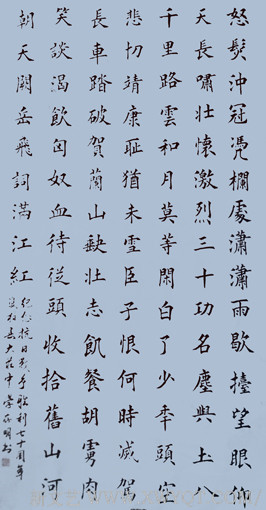 怒髮沖冠凴欄處瀟瀟雨歇擡望眼仰
天長嘯壯懷激烈三十功名塵與土八
千里路雲和月莫等閑白了少年頭空
悲切靖康恥猶未雪臣子恨何時滅駕
長車踏破賀蘭山缺壯志飢餐胡虜肉
笑談渴飲匈奴血待從頭收拾舊山河
朝天闕岳飛詞滿江紅
紀念抗日戰爭勝利七十周年